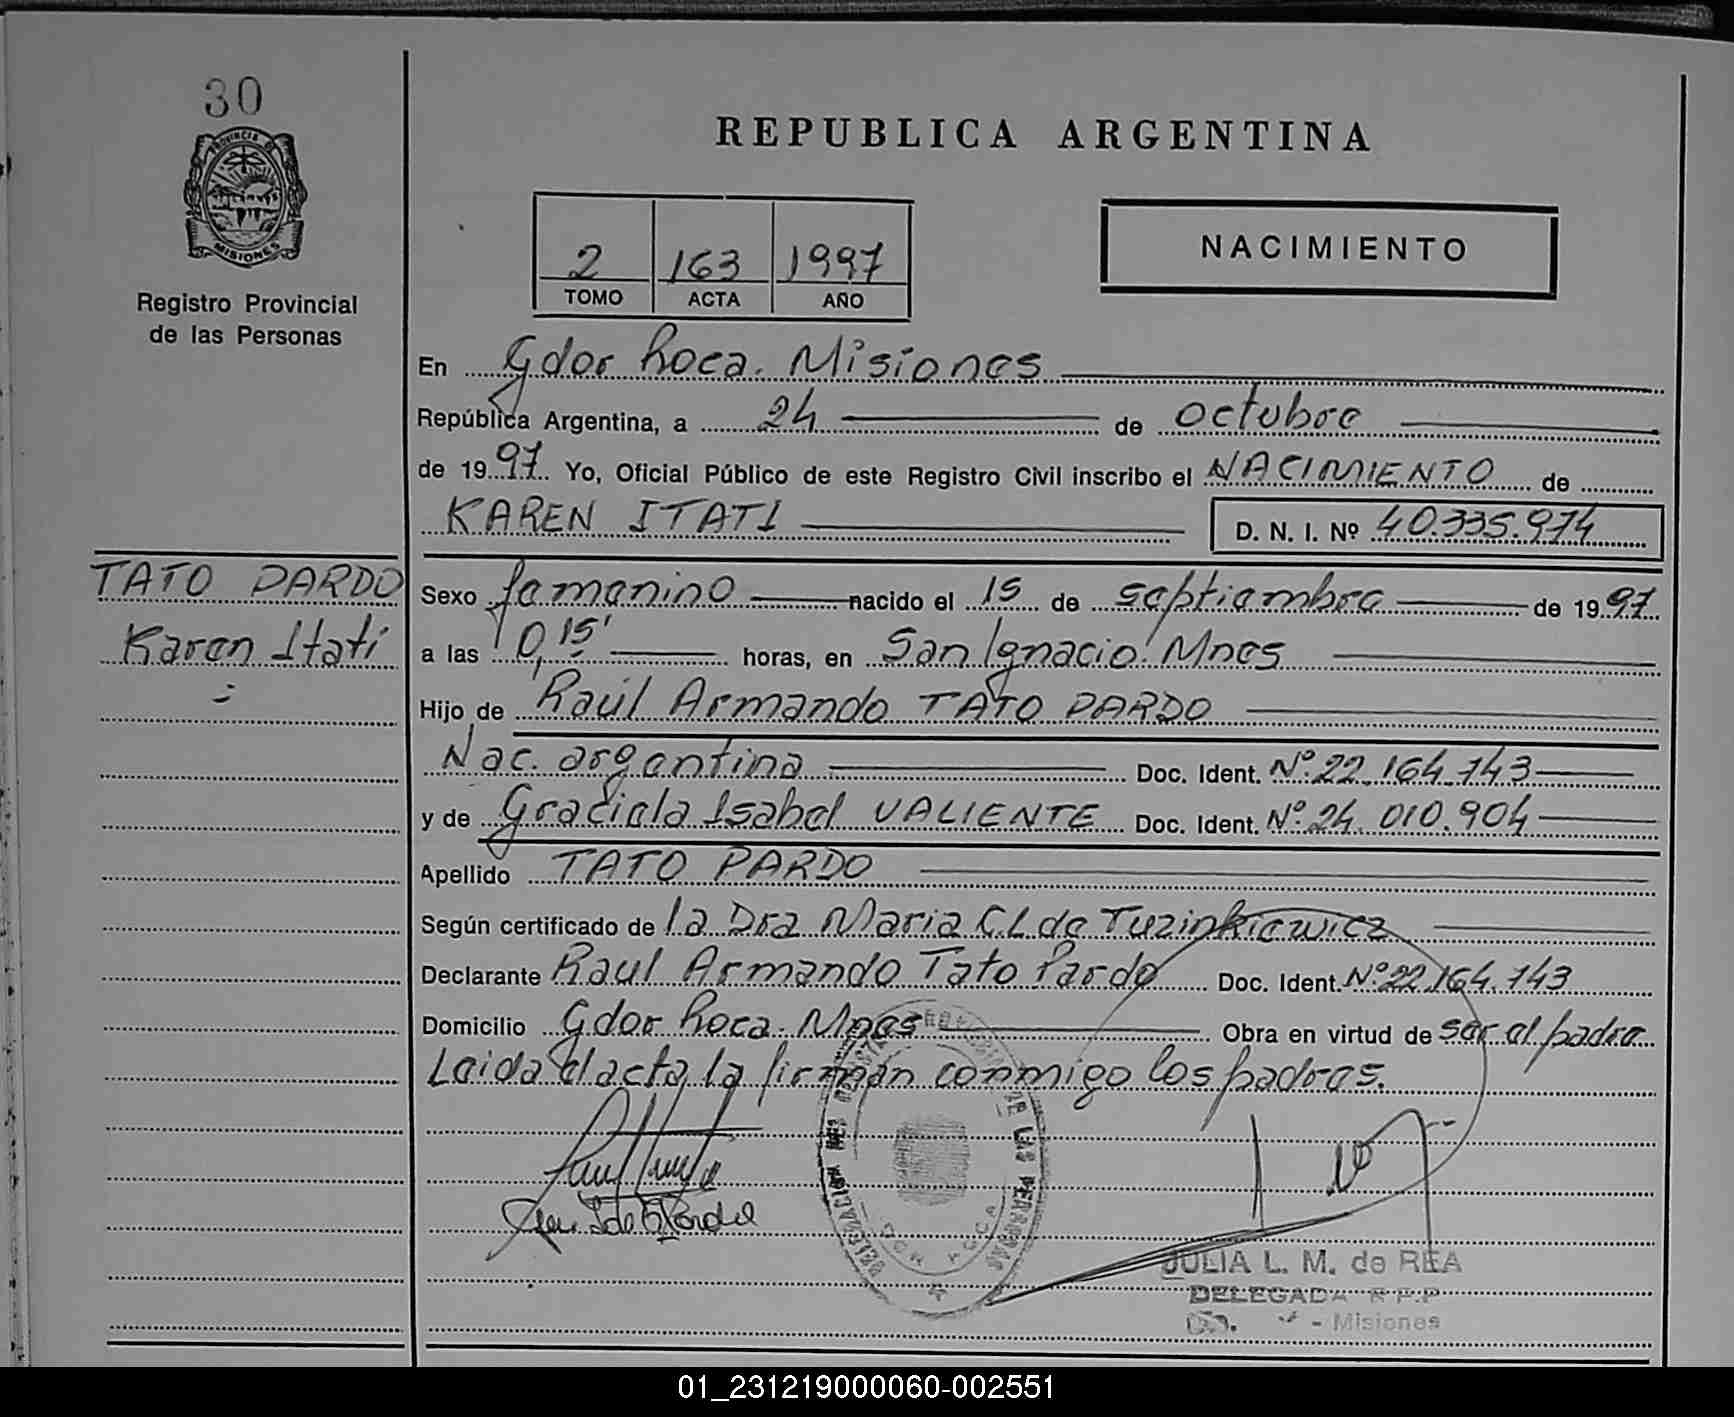 30
PROVINCIA DE
MISIONES
Registro Provincial
de las Personas
REPUBLICA ARGENTINA
2 163 1997
TOMO ACTA AÑO
NACIMIENTO
En Gdor Roca. Misiones
República Argentina, a 24 de octubre
de 1997 Yo, Oficial Público de este Registro Civil inscribo el NACIMIENTO de
KAREN ITATI D. N. I. Nº 40.335.974
TATO PARDO
Karen Itatí
Sexo femenino nacido el 15 de septiembre de 1997
a las 0,15' horas, en San Ignacio. Mnes
Hijo de Raúl Armando TATO PARDO
Nac. argentina Doc. Ident. Nº 22.164.143
y de Graciela Isabel VALIENTE Doc. Ident. Nº 24.010.904
Apellido TATO PARDO
Según certificado de la Dra Maria C.L de Tuzinkiewicz
Declarante Raul Armando Tato Pardo Doc. Ident. Nº 22.164.143
Domicilio Gdor Roca. Mnes Obra en virtud de ser el padre
Leida el acta la firman conmigo los padres.
DE LAS PERSONAS
JULIA L. M. de REA
DELEGADA R.P.P
- Misiones
01_231219000060-002551